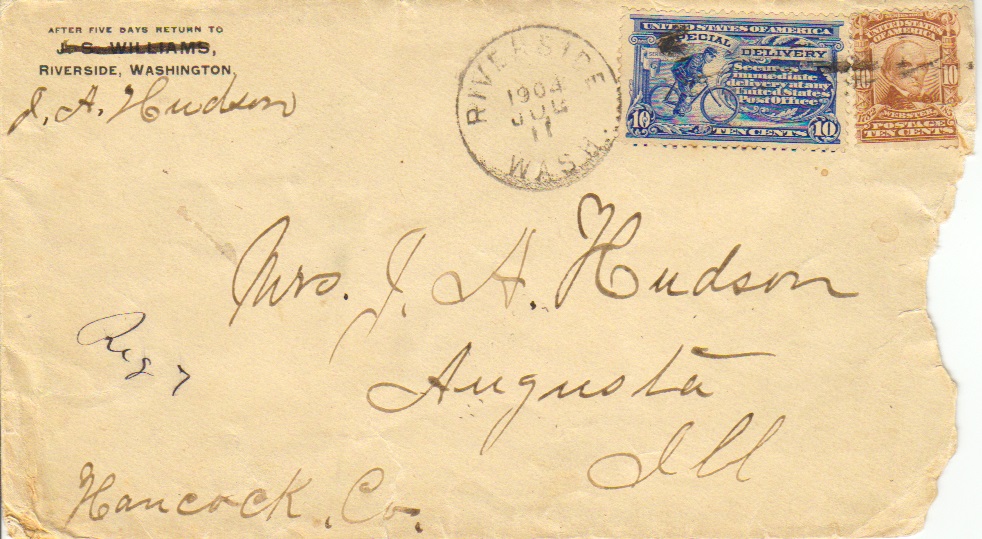 AFTER FIVE DAYS RETURN TO
J. S. WILLIAMS,
RIVERSIDE, WASHINGTON.
J. A. Hudson
RIVERSIDE
1904
JUL
11
WASH.
UNITED STATES OF AMERICA
SPECIAL DELIVERY
Secures
immediate
delivery at any
United States
Post Office
10 TEN CENTS 10
UNITED STATES
OF AMERICA
10 10
WEBSTER
POSTAGE
TEN CENTS
Mrs. J. A. Hudson
Augusta
Ill
Reg 7
Hancock. Co.